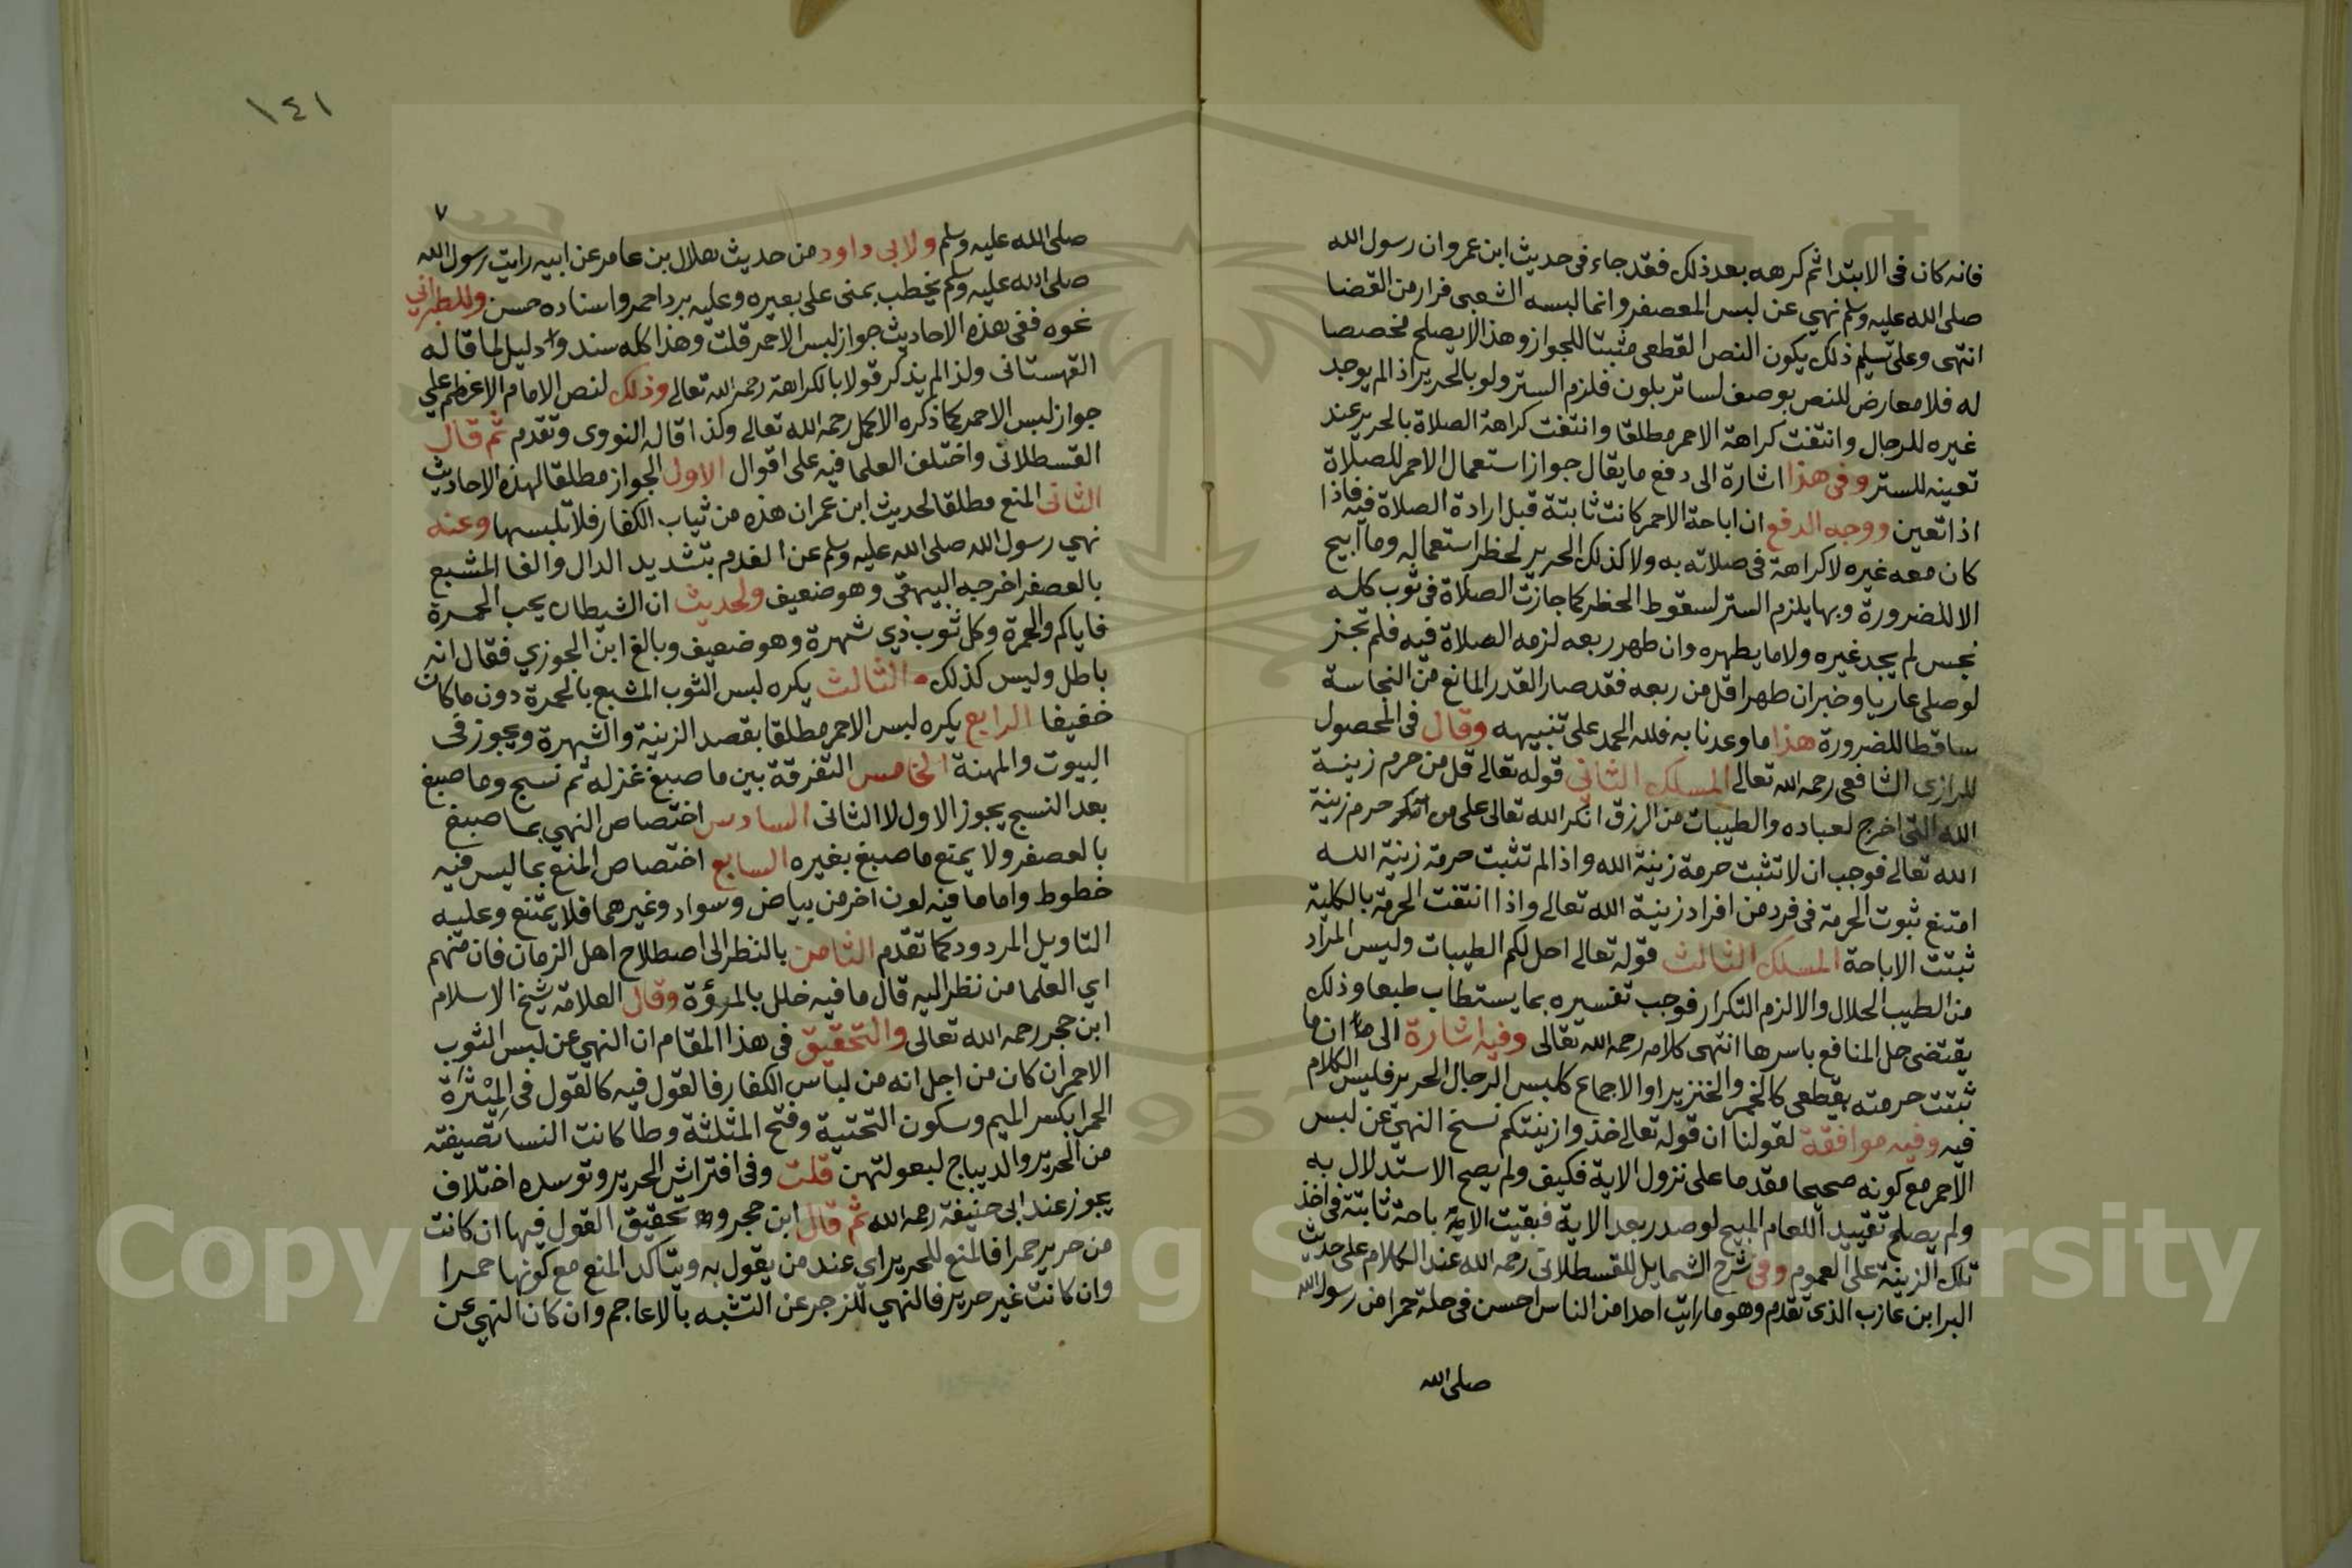 فانه كان فى الابتدا ثم كرهه بعد ذلك فقد جاء فى حديث ابن عمر وان رسول الله
صلى الله عليه وسلم نهي عن لبس المعصفر وانما لبسه الشعبى فرارا من القضا
انتهى وعلى تسليم ذلك يكون النص القطعى مثبتا للجواز وهذا لا يصلح مخصصا
له فلا معارض للنص بوصف لساتر بلون فلزم الستر ولو بالحرير اذا لم يوجد
غيره للرجال وانتفت كراهة الاحمر مطلقا وانتفت كراهة الصلاة بالحرير عند
تعينه للستر وفى هذا اشارة الى دفع ما يقال جواز استعمال الاحمر للصلاة
اذا تعين ووجه الدفع ان اباحة الاحمر كانت ثابتة قبل ارادة الصلاة فيه فاذا
كان معه غيره لا كراهة فى صلاته به ولا كذلك الحرير لحظر استعماله وما ابيح
الا للضرورة وبها يلزم الستر لسقوط الحظر كما جازت الصلاة فى ثوب كله
نجس لم يجد غيره ولا ما يطهره وان طهر ربعه لزمه الصلاة فيه فلم تجز
لو صلى عاريا وخير ان طهر اقل من ربعه فقد صار القدر المانع من النجاسة
ساقطا للضرورة هذا ما وعدنا به فلله الحمد على تنبيهه وقال فى المحصول
للرازى الشافعى رحمه الله تعالى المسلك الثاني قوله تعالى قل من حرم زينة
الله التى اخرج لعباده والطيبات من الرزق انكر الله تعالى على من حرم زينة
الله تعالى فوجب ان لا تثبت حرمة زينة الله واذا لم تثبت حرمة زينة الله
امتنع ثبوت الحرمة فى فرد من افراد زينة الله تعالى واذا انتفت الحرمة بالكلية
ثبتت الاباحة المسلك الثالث قوله تعالى احل لكم الطيبات وليس المراد
من الطيب الحلال والا لزم التكرار فوجب تفسيره بما يستطاب طبعا وذلك
يقتضى حل المنافع باسرها انتهى كلامه رحمه الله تعالى وفيه اشارة الى ان ما
ثبتت حرمته بقطعى كالخمر والخنزير او الاجماع كلبس الرجال الحرير فليس الكلام
فيه وفيه موافقة لقولنا ان قوله تعالى خذوا زينتكم نسخ النهى عن لبس
الاحمر مع كونه صحيحا مقدما على نزول الاية فكيف ولم يصح الاستدلال به
ولم يصلح تقييد العام المبيح لو صدر بعد الاية فبقيت الاباحة ثابتة فى اخذ
تلك الزينة على العموم وفى شرح الشمايل للقسطلانى رحمه الله عند الكلام على حديث
البرا بن عازب الذى تقدم وهو ما رايت احدا من الناس احسن فى حلة حمرا من رسول الله
صلى الله
١٤١
٧
صلى الله عليه وسلم ولابى داود من حديث هلال بن عامر عن ابيه رايت رسول الله
صلى الله عليه وسلم يخطب بمنى على بعيره وعليه برد احمر واسناده حسن وللطبراني
نحوه ففى هذه الاحاديث جواز لبس الاحمر قلت وهذا كله سند ودليل لما قاله
القهستانى ولذا لم يذكر قولا بالكراهة رحمه الله تعالى وذلك لنص الامام الاعظم علي
جواز لبس الاحمر كما ذكره الاكمل رحمه الله تعالى وكذا قاله النووى وتقدم ثم قال
القسطلانى واختلف العلما فيه على اقوال الاول الجواز مطلقا لهذه الاحاديث
الثانى المنع مطلقا لحديث ابن عمر ان هذه من ثياب الكفار فلا تلبسها وعنه
نهي رسول الله صلى الله عليه وسلم عن المفدم بتشديد الدال والفا المشبع
بالعصفر اخرجه البيهقى وهو ضعيف ولحديث ان الشيطان يحب الحمرة
فاياكم والحمرة وكل ثوب ذي شهرة وهو ضعيف وبالغ ابن الجوزي فقال انه
باطل وليس كذلك الثالث يكره لبس الثوب المشبع بالحمرة دون ما كان
خفيفا الرابع يكره لبس الاحمر مطلقا بقصد الزينة والشهرة ويجوز فى
البيوت والمهنة الخامس التفرقة بين ما صبغ غزله ثم نسج وما صبغ
بعد النسج يجوز الاول لا الثانى السادس اختصاص النهي بما صبغ
بالعصفر ولا يمتع ما صبغ بغيره السابع اختصاص المنع بما ليس فيه
خطوط واما ما فيه لون اخر من بياض وسواد وغيرهما فلا يمتنع وعليه
التاويل المردود كما تقدم الثامن بالنظر الى اصطلاح اهل الزمان فان منهم
اي العلما من نظر اليه قال ما فيه خلل بالمروءة وقال العلامة شيخ الاسلام
ابن حجر رحمه الله تعالى والتحقيق فى هذا المقام ان النهي عن لبس الثوب
الاحمر ان كان من اجل انه من لباس الكفار فالقول فيه كالقول فى المِيْثرة
الحمرا بكسر الميم وسكون التحتية وفتح المثلثة وطا كانت النسا تصيفته
من الحرير والديباج لبعولتهن قلت وفى افتراش الحرير وتوسده اختلاف
يجوز عند ابى حنيفة رحمه الله ثم قال ابن حجر وتحقيق القول فيها ان كانت
من حرير حمرا فالمنع للحرير اي عند من يقول به ويتاكد المنع مع كونها حمرا
وان كانت غير حرير فالنهي للزجر عن التشبه بالاعاجم وان كان النهي عن
Copyright © King Saud University
1957